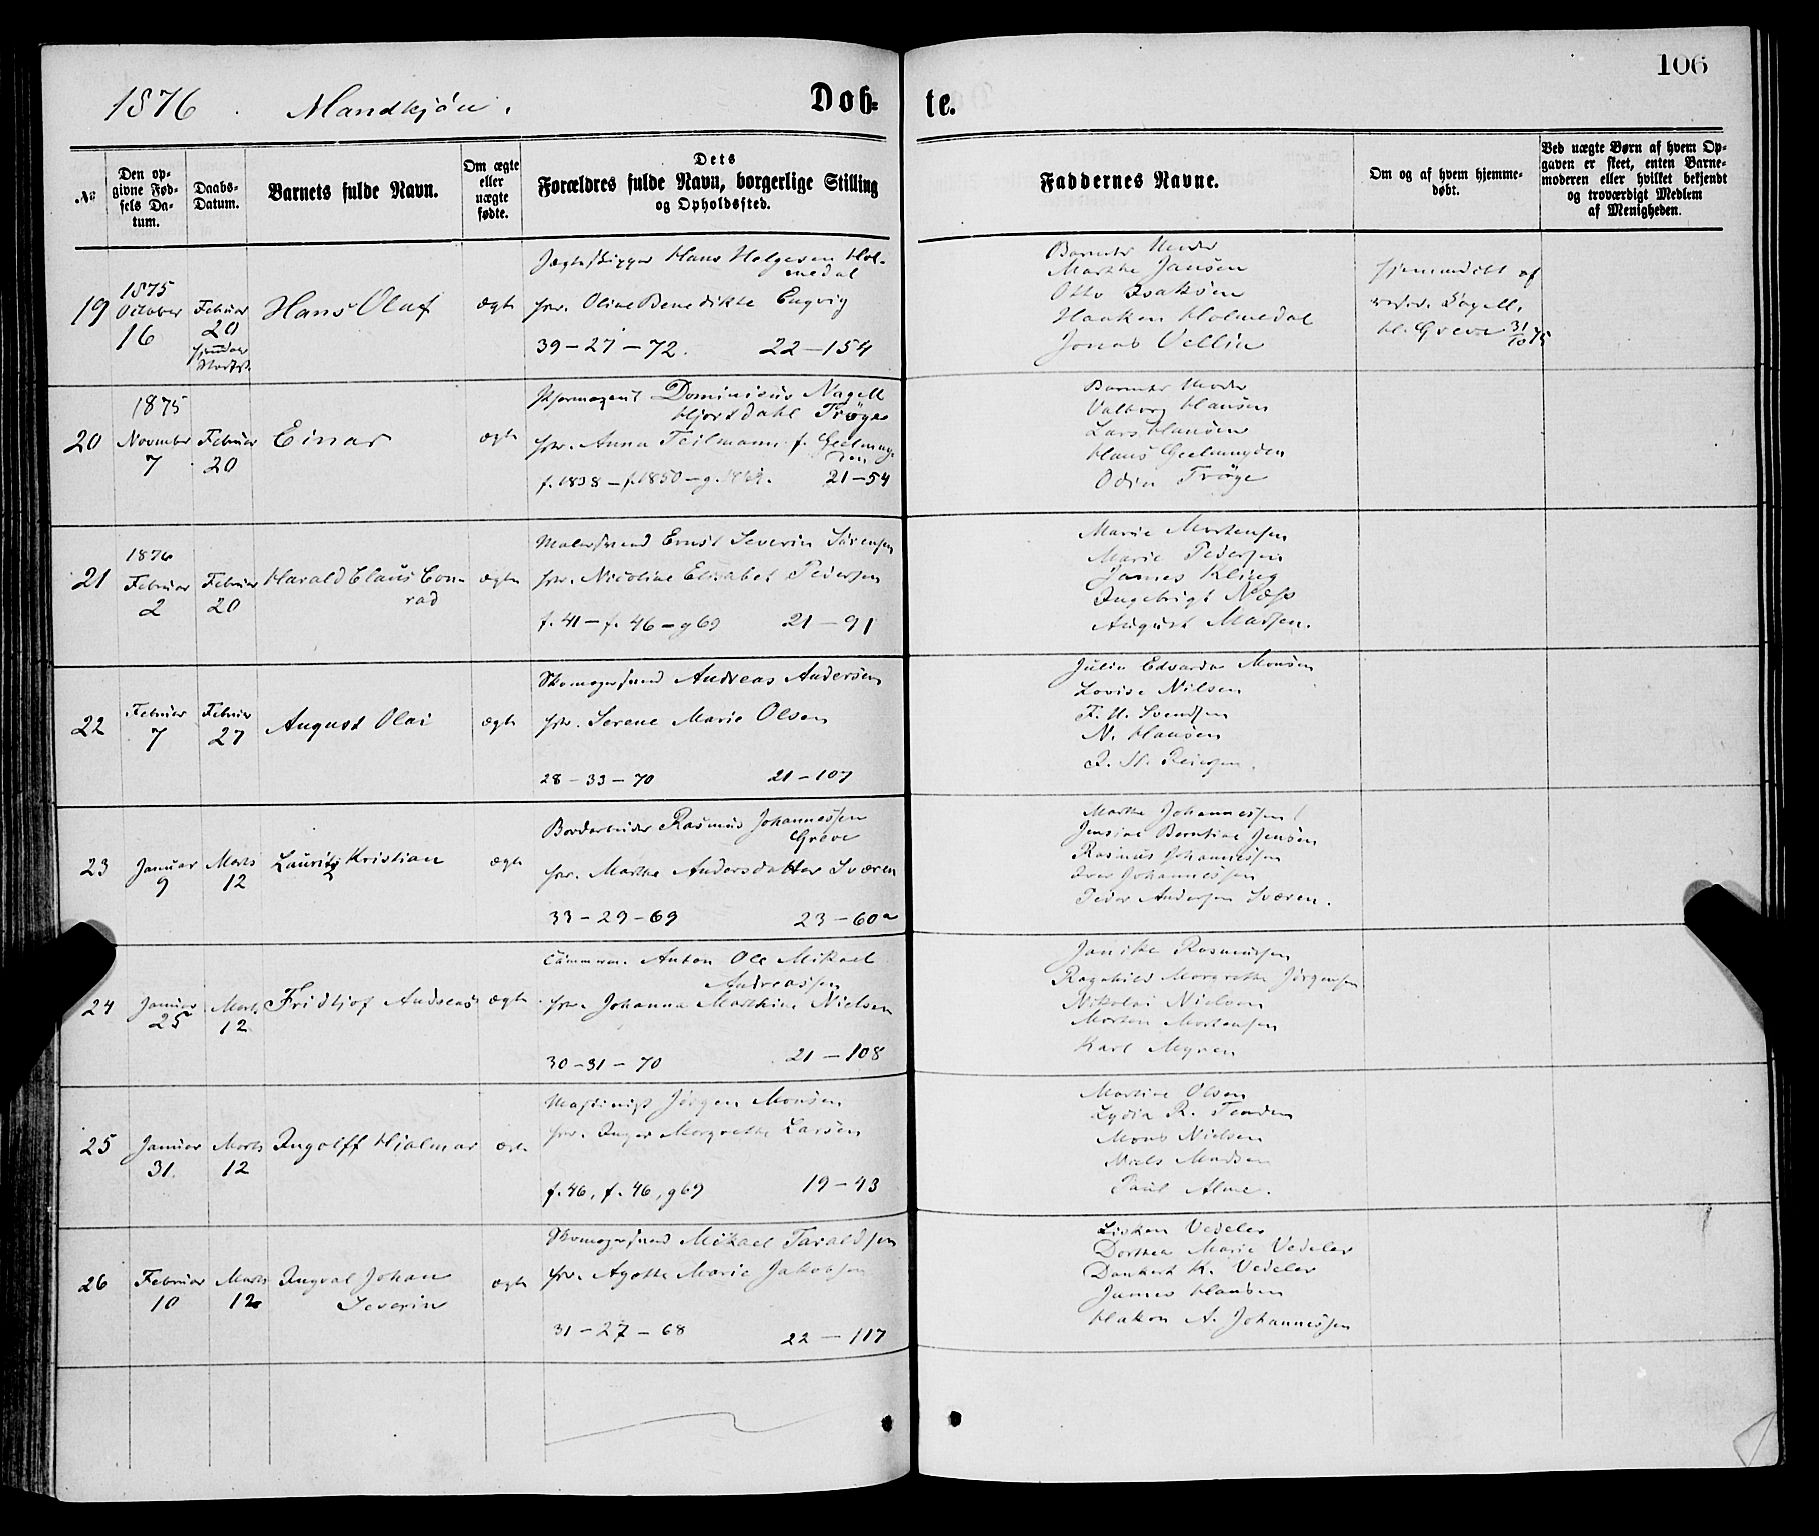 106
1876. Mandkjøn. Døb-te.
No
Den op-
givne Fød-
sels Da-
tum.
Daabs-
Datum.
Barnets fulde Navn.
Om ægte
eller
uægte
fødte.
Dets
Forældres fulde Navn, borgerlige Stilling
og Opholdssted.
Faddernes Navne.
Om og af hvem hjemme-
døbt.
Ved uægte Børn af hvem Op-
gaven er skeet, enten Barne-
moderen eller hvilket bekjendt
og troværdigt Medlem
af Menigheden.
19
1875
October
16
Februar
20
Hans Olaf
ægte
Jægteskipper Hans Helgesen Hol-
medal
Oline Benedikte Engvig
39-27-72. 22-154
Barnets Moder
Marthe Jansen
Otto Isaksen
Haaken Holmedal
Jonas Vellin
hjemmedøbt af
Greve 31/10 75
20
1875
November
7
Februar
20
Einar
ægte
Dominicus Nagell
Hjortdahl Trøye
Anna Teilmann f. Geelmuy-
den
f. 1838 - f. 1850 - g. 1869. 21-54
Barnets Moder
Valborg Hansen
Lars Hansen
Hans Geelmuyden
Odin Trøye
21
1876
Februar
2
Februar
20
Harald Claus Con-
rad
ægte
Malersvend Ernst Severin Sørensen
Nicoline Elisabet Pedersen
f. 41 - f. 46 - g 69 21-91
Marie Mortensen
Marie Pedersen
James Kling
Ingebrigt Næss
August Madsen.
22
Februar
7
Februar
27
August Olai
ægte
Skomagersvend Andreas Andersen
Serene Marie Olsen
28-33-70 21-107
Julie Edvarda Monsen
Lovise Nilsen
F. H. Svendsen
N. Hansen
23
Januar
9
Marts
12
Lauritz Kristian
ægte
Bordarbeider Rasmus Johannessen
Greve
Marthe Andersdatter Sværen
33-29-69 23-60a
Marthe Johannessen
Jensine Berntine Jensen
Rasmus Johannessen
Iver Johannessen
Peder Andersen Sværen.
24
Januar
25
Marts
12
Fridtjof Andreas
ægte
Anton Ole Mikael
Andreassen
Johanna Marthine Nielsen
30-31-70 21-108
Janike Rasmussen
Ragnhild Margrethe Jørgensen
Nikolai Nielsen
Morten Mortensen
Karl Myren
25
Januar
31.
Marts
12
Ingolff Hjalmar
ægte
Maskinist Jørgen Monsen
Inger Margrethe Larsen
f. 46, f. 46, g 69 19-43
Martine Olsen
Lydia R. Tenden
Mons Nielsen
Niels Madsen
Paul Alme.
26
Februar
10
Marts
12
Ingval Johan
Severin
ægte
Skomagersvend Mikael Taraldsen
Agathe Marie Jakobsen
31-27-68 22-117
Lisken Vedeler
Dorthea Marie Vedeler
Dankert K. Vedeler
James Hansen
Hakon A. Johannessen